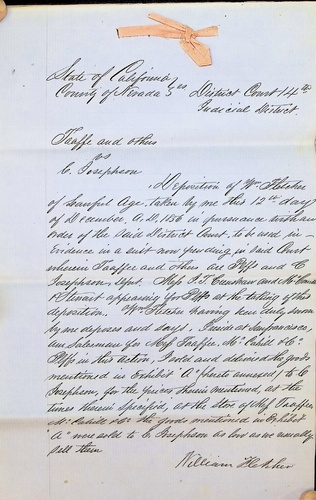 State of California
County of Nevada ss District Court 14th
Judicial District
Taaffe and others
vs
C. Josephson
Deposition of Wm Fletcher
of Lawful Age, taken by me this 12th day
of December, A.D. 1856 in pursuance with an
order of the said District Court, to be used in
Evidence in a suit now pending in said Court
wherein Taaffee and others are Plffs and C
Josephson, Dft. Messrs
R Stuart appearing for Plffs at the taking of this
deposition. Wm Fletcher having been duly sworn
by me deposes and says, I reside at San francisco,
am Salesman for Messrs Taaffee, McCahill & Co.
Plffs in this action, I sold and delivered the goods
mentioned in Exhibit "A" (hereto annexed) to C
Josephson, for the prices therein mentioned, at the
times therein specified, at the Store of Messrs Taaffee
McCahill & Co The goods mentioned in Exhibit
"A" were sold to C Josephson as low as we usually
sell them
William Fletcher